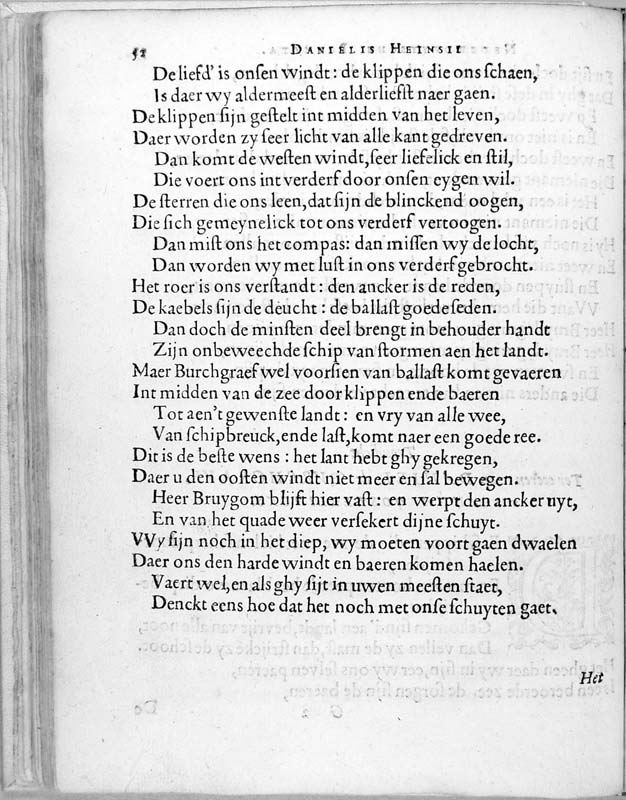 52 DANIËLIS HEINSII
De liefd' is onsen windt: de klippen die ons schaen,
Is daer wy aldermeest en alderliefst naer gaen.
De klippen sijn gestelt int midden van het leven,
Daer worden zy seer licht van alle kant gedreven.
Dan komt de westen windt, seer liefelick en stil,
Die voert ons int verderf door onsen eygen wil.
De sterren die ons leen, dat sijn de blinckend oogen,
Die sich gemeynelick tot ons verderf vertoogen.
Dan mist ons het compas: dan missen wy de locht,
Dan worden wy met lust in ons verderf gebrocht.
Het roer is ons verstandt: den ancker is de reden,
De kaebels sijn de deucht: de ballast goede seden.
Dan doch de minsten deel brengt in behouder handt
Zijn onbeweechde schip van stormen aen het landt.
Maer Burchgraef wel voorsien van ballast komt gevaeren
Int midden van de zee door klippen ende baeren
Tot aen't gewenste landt: en vry van alle wee,
Van schipbreuck, ende last, komt naer een goede ree.
Dit is de beste wens: het lant hebt ghy gekregen,
Daer u den oosten windt niet meer en sal bewegen.
Heer Bruygom blijft hier vast: en werpt den ancker uyt,
En van het quade weer versekert dijne schuyt.
VVy sijn noch in het diep, wy moeten voort gaen dwaelen
Daer ons den harde windt en baeren komen haelen.
Vaert wel, en als ghy sijt in uwen meesten staet,
Denckt eens hoe dat het noch met onse schuyten gaet.
Het